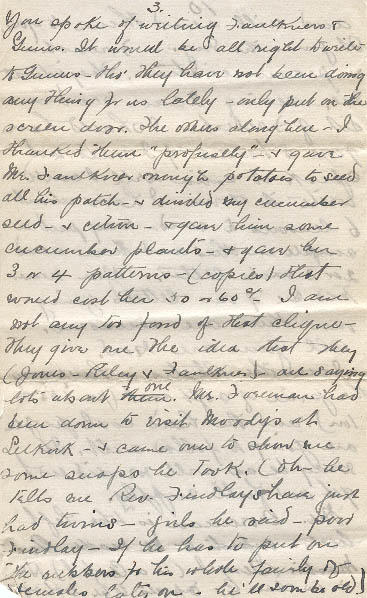 3.
You spoke of writing Faulkners &
Gunns. It would be all right to write
to Gunns - tho' they have not been doing
any thing for us lately - only put on the
screen door. The others along here - I
thanked them "profusely" - & gave
Mr. Faulkner enough potatoes to seed
all his patch - & divided my cucumber
seed - & citron - & gave him some
cucumber plants - & gave her
3 or 4 patterns - (copies) that
would cost her 50 or 60¢ - I am
not any too fond of that clique -
They give one the idea that they
(Jones - Riley & Faulkner) - are saying
lots about them. one Mr. Foreman had
been down to visit Moodys at
Selkirk - & came over to show me
some snaps he took. (Oh - he
tells me Rev. Findlays have just
had twins - girls he said - poor
Findlay - If he has to put on
the rubbers for his whole family of
females later on - he'll soon be old)